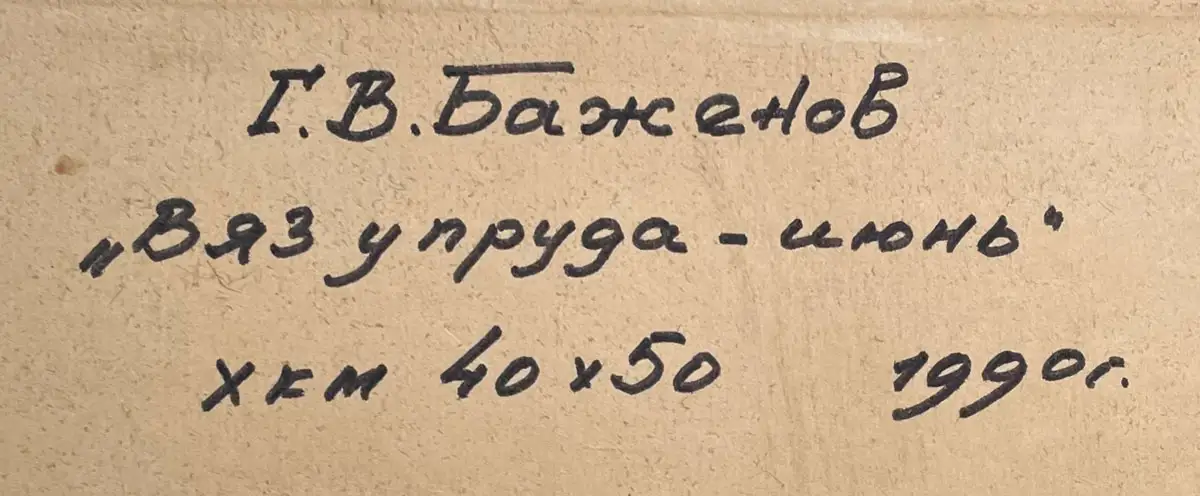 Г.В.Баженов
„Вяз у пруда - июнь"
хкм 40х50 1990г.